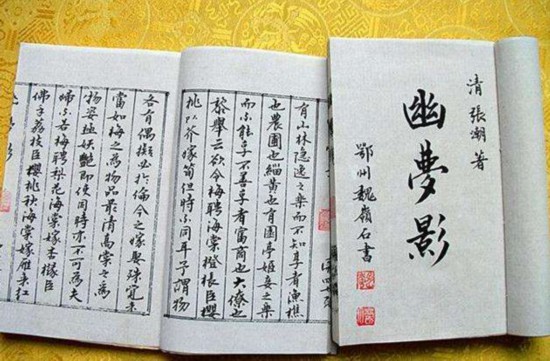 清 張潮 著
幽夢影
鄂州魏嶺石書
有山林隱逸之樂而不知享者漁樵
也農圃也緇黃也有園亭姬妾之樂
而不能享不善享者富商也大僚也
黎舉云欲令梅聘海棠橙棖臣櫻
桃以芥嫁筍但時不同耳予謂物
各有偶擬必於倫今之嫁娶殊覺未
當如梅之為物品最清高棠之為
物姿極妖艷即使同時亦不可為夫
婦不若梅聘梨花海棠嫁杏櫞臣
佛手荔枝臣櫻桃秋海棠嫁雁來紅